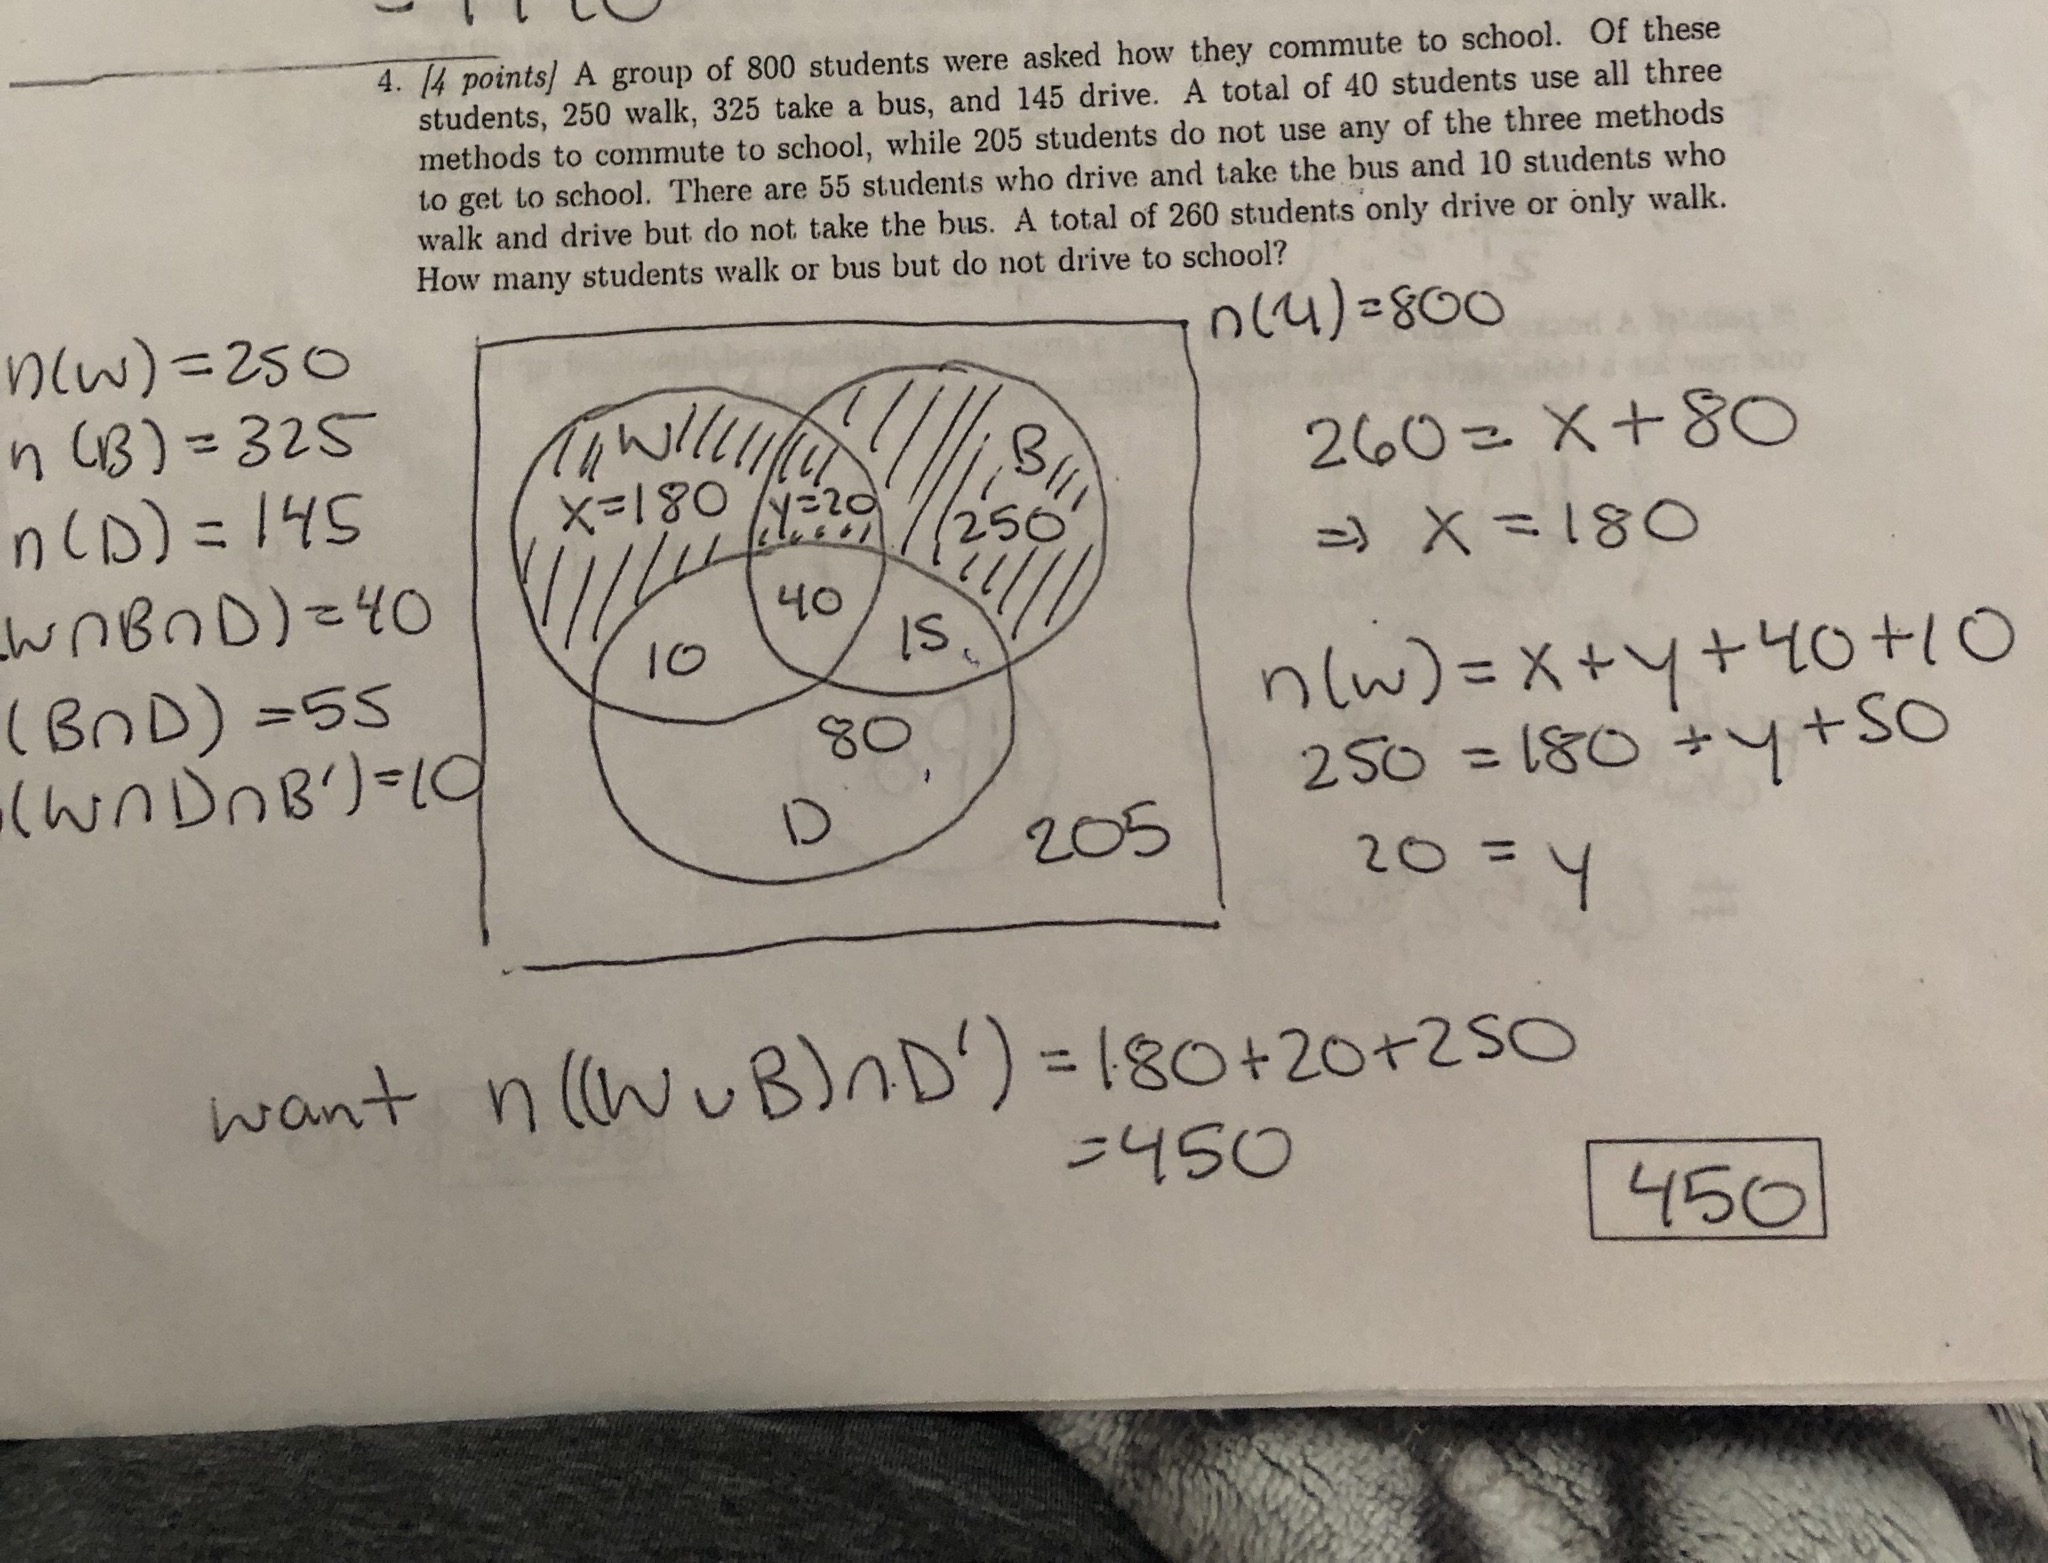 4. [4 points] A group of 800 students were asked how they commute to school. Of these
students, 250 walk, 325 take a bus, and 145 drive. A total of 40 students use all three
methods to commute to school, while 205 students do not use any of the three methods
to get to school. There are 55 students who drive and take the bus and 10 students who
walk and drive but do not take the bus. A total of 260 students only drive or only walk.
How many students walk or bus but do not drive to school?
n(U)=800
n(W)=250
n(B)=325
n(D)=145
W∩B∩D)=40
(B∩D)=55
(W∩D∩B')=10
W
B
x=180
y=20
250
40
10
15
80
D
205
260=x+80
⇒ x=180
n(W)=x+y+40+10
250=180+y+50
20=y
want n((W∪B)∩D')=180+20+250
=450
450